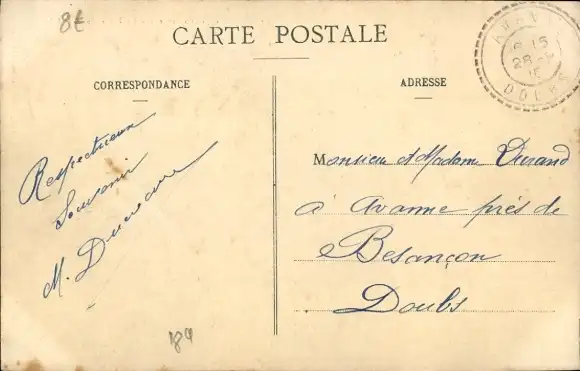 8€
CARTE POSTALE
CORRESPONDANCE
ADRESSE
6 15
28
15
DOUBS
Respectueux
Souvenir
M.
Monsieur et Madame Durand
à Avanne près de
Besançon
Doubs
189